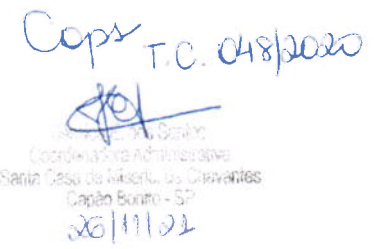 Caps T.C. 048/2020
Coordenadora Administrativa
Santa Casa de Miseric. de Chavantes
Capão Bonito - SP
26/11/21